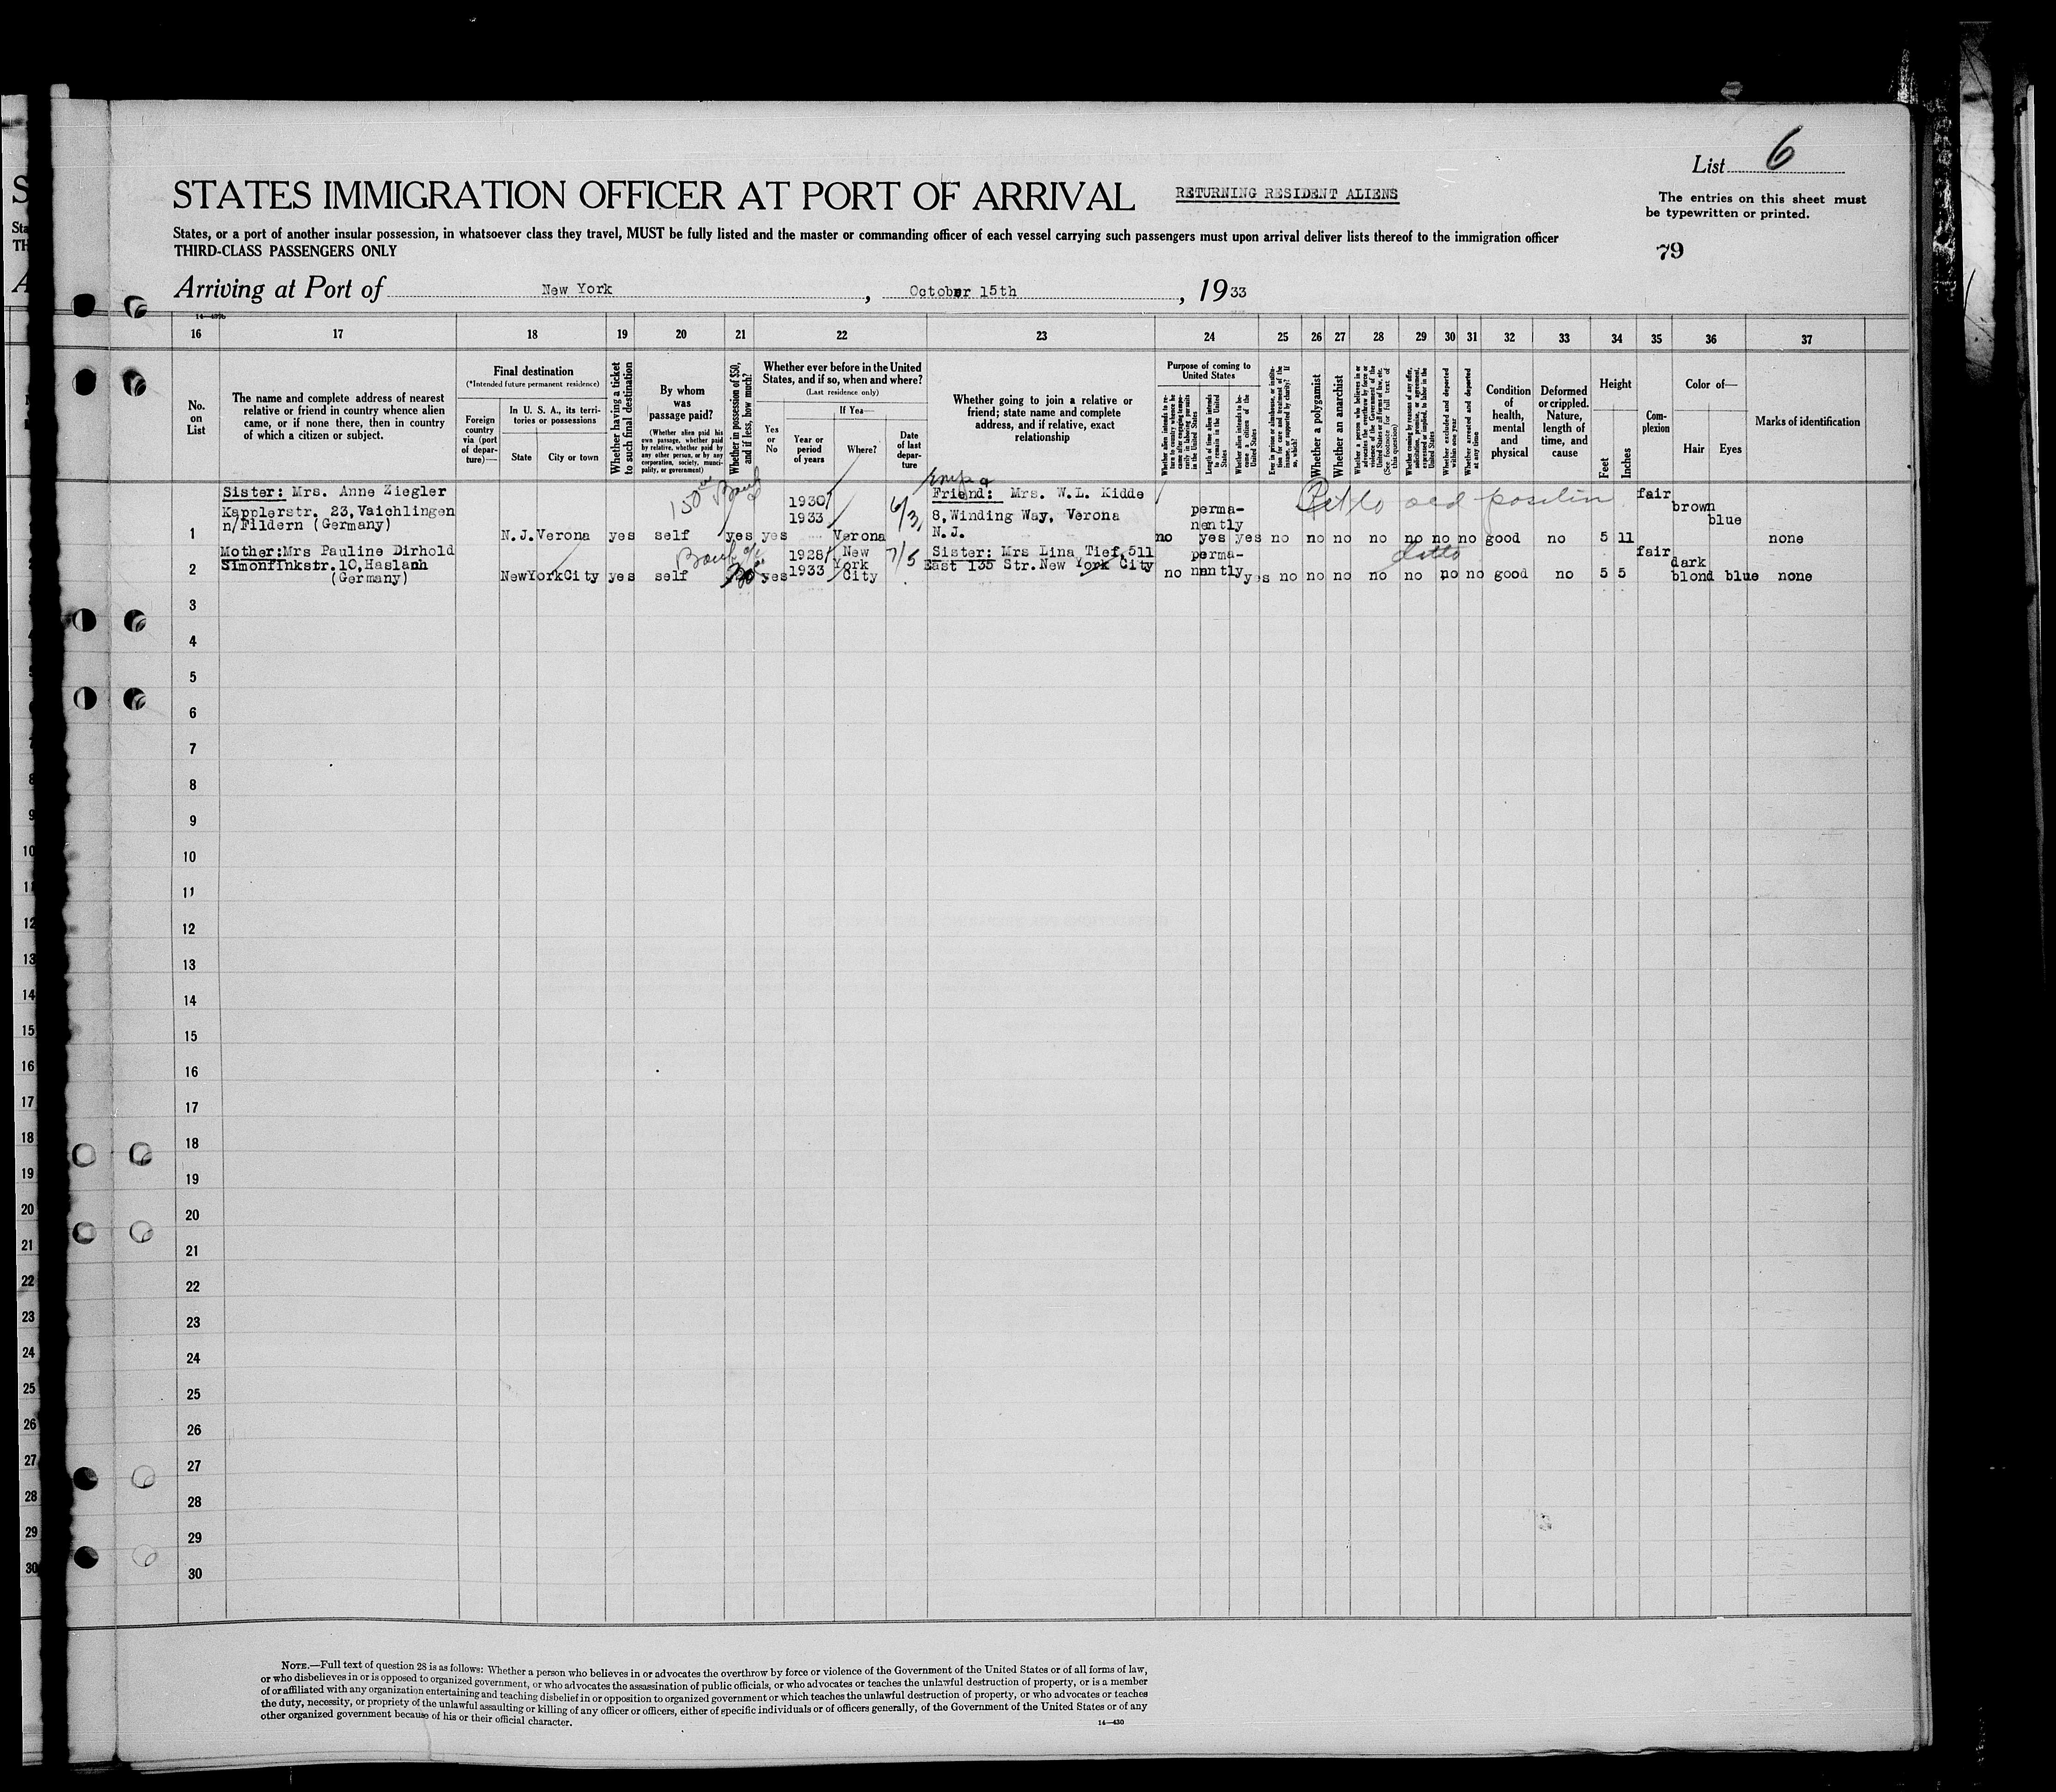 List 6
STATES IMMIGRATION OFFICER AT PORT OF ARRIVAL
RETURNING RESIDENT ALIENS
The entries on this sheet must
be typewritten or printed.
States, or a port of another insular possession, in whatsoever class they travel, MUST be fully listed and the master or commanding officer of each vessel carrying such passengers must upon arrival deliver lists thereof to the immigration officer
THIRD-CLASS PASSENGERS ONLY
79
Arriving at Port of New York, October 15th, 1933
14—430b
16 17 18 19 20 21 22 23 24 25 26 27 28 29 30 31 32 33 34 35 36 37
No.
on
List
The name and complete address of nearest
relative or friend in country whence alien
came, or if none there, then in country
of which a citizen or subject.
Final destination
(*Intended future permanent residence)
Foreign
country
via (port
of depar-
ture)—
In U. S. A., its terri-
tories or possessions
State
City or town
Whether having a ticket
to such final destination
By whom
was
passage paid?
(Whether alien paid his
own passage, whether paid
by relative, whether paid by
any other person, or by any
corporation, society, munici-
pality, or government)
Whether in possession of $50,
and if less, how much?
Whether ever before in the United
States, and if so, when and where?
(Last residence only)
Yes
or
No
If Yes—
Year or
period
of years
Where?
Date
of last
depar-
ture
Whether going to join a relative or
friend; state name and complete
address, and if relative, exact
relationship
Purpose of coming to
United States
Whether alien intends to re-
turn to country whence he
came after engaging tempo-
rarily in laboring pursuits
in the United States
Length of time alien intends
to remain in the United
States
Whether alien intends to be-
come a citizen of the
United States
Ever in prison or almshouse, or institu-
tion for care and treatment of the
insane, or supported by charity? If
so, which?
Whether a polygamist
Whether an anarchist
Whether a person who believes in or
advocates the overthrow by force or
violence of the Government of the
United States or all forms of law, etc.
(See footnote for full text of
this question)
Whether coming by reason of any offer,
solicitation, promise, or agreement,
expressed or implied, to labor in the
United States
Whether excluded and deported
within one year
Whether arrested and deported
at any time
Condition
of
health,
mental
and
physical
Deformed
or crippled.
Nature,
length of
time, and
cause
Height
Feet
Inches
Com-
plexion
Color of—
Hair
Eyes
Marks of identification
1
Sister: Mrs. Anne Ziegler
Kapplerstr. 23, Vaichlingen
n/Fildern (Germany)
N.J. Verona yes self yes yes
1930
1933
Verona
6/3
Friend: Mrs. W.L. Kidde
8, Winding Way, Verona
N.J.
no
perma-
nently
yes yes no no no no no no no good no 5 11 fair brown blue none
Ret to old position
2
Mother: Mrs Pauline Dirhold
Simonfinkstr. 10, Haslanh
(Germany)
New York City yes self yes
1928
1933
New
York
City
7/5
Sister: Mrs Lina Tief, 511
East 135 Str. New York City
no
perma-
nently
yes no no no no no no no good no 5 5 fair dark
blond blue none
ditto
3
4
5
6
7
8
9
10
11
12
13
14
15
16
17
18
19
20
21
22
23
24
25
26
27
28
29
30
NOTE.—Full text of question 28 is as follows: Whether a person who believes in or advocates the overthrow by force or violence of the Government of the United States or of all forms of law,
or who disbelieves in or is opposed to organized government, or who advocates the assassination of public officials, or who advocates or teaches the unlawful destruction of property, or is a member
of or affiliated with any organization entertaining and teaching disbelief in or opposition to organized government or which teaches the unlawful destruction of property, or who advocates or teaches
the duty, necessity, or propriety of the unlawful assaulting or killing of any officer or officers, either of specific individuals or of officers generally, of the Government of the United States or of any
other organized government because of his or their official character.
14—430